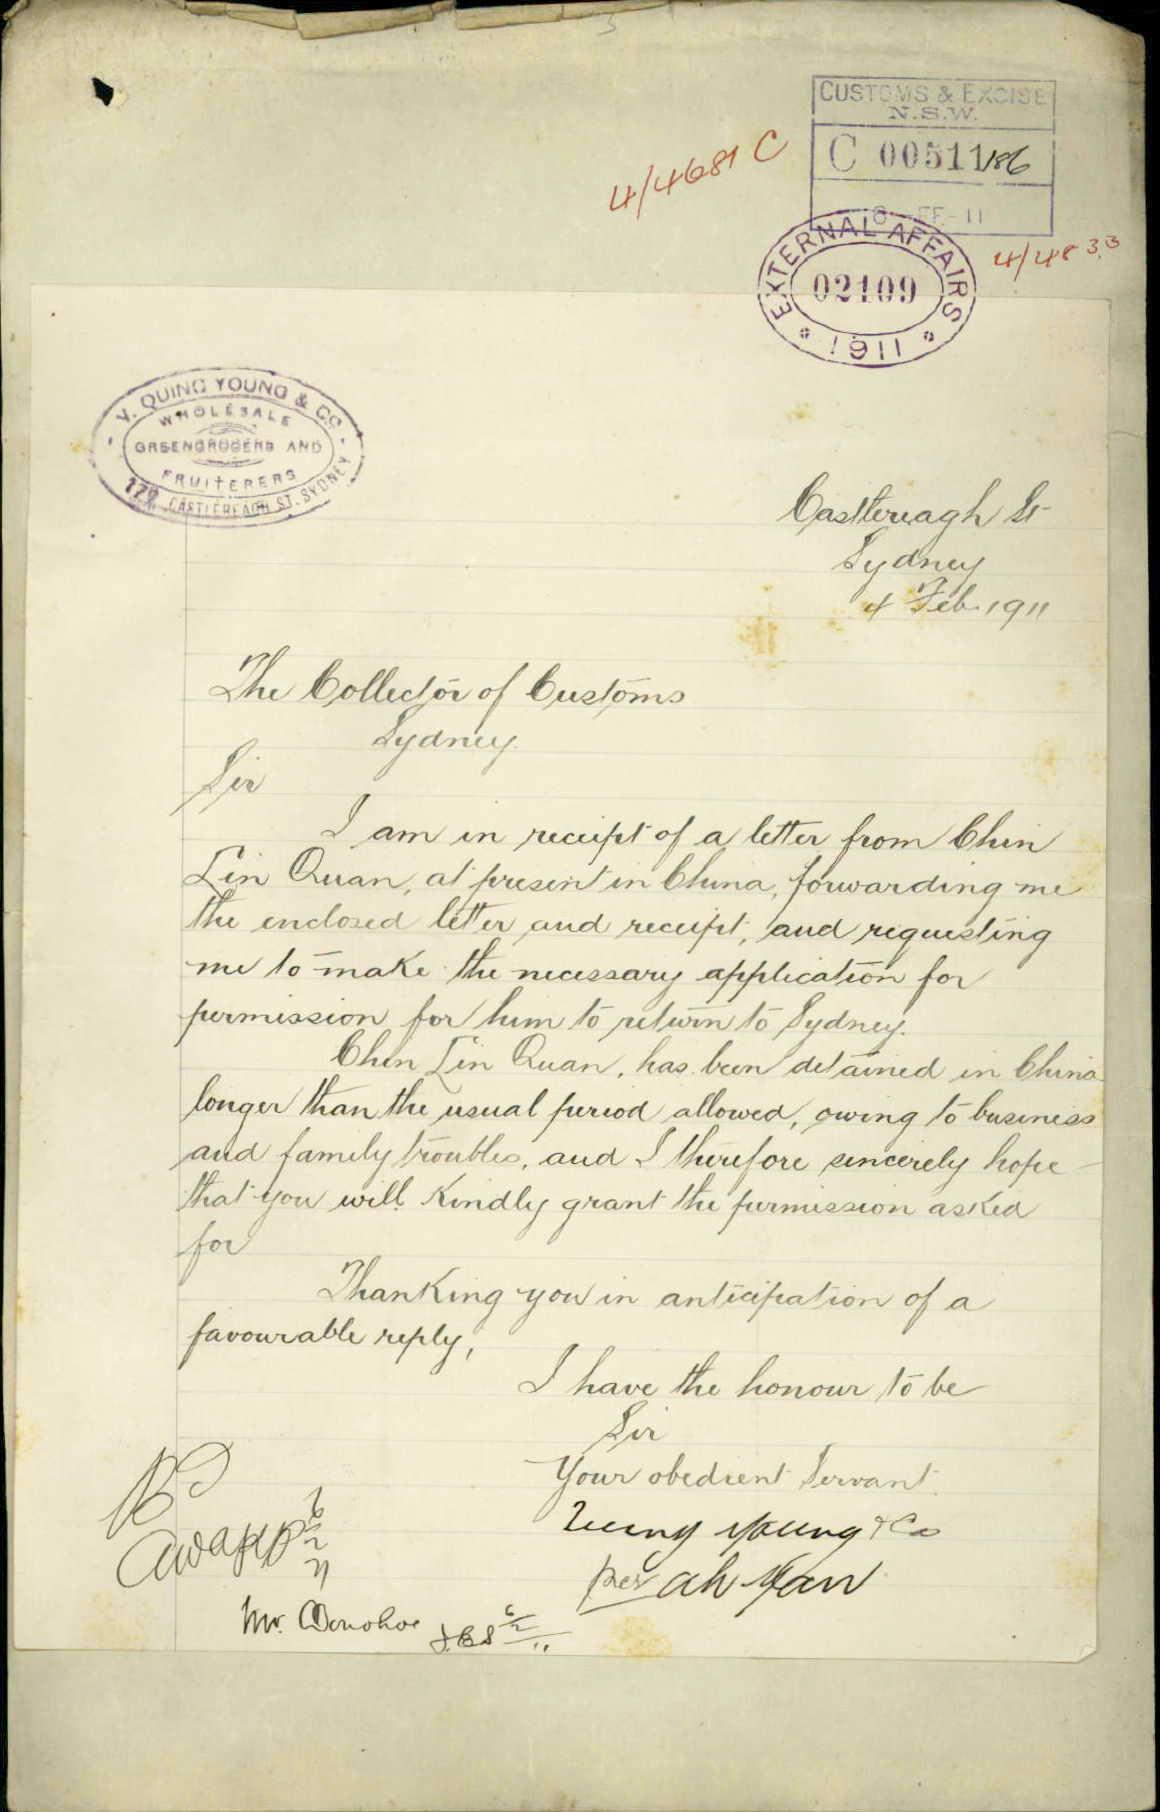 CUSTOMS & EXCISE
N.S.W.
C 00511/186
4/4681 C
EXTERNAL AFFAIRS
02109
1911
Y. QUING YOUNG & CO.
WHOLESALE
GREENGROCERS AND
FRUITERERS
179 CASTLEREAGH ST. SYDNEY
Castlereagh St
Sydney
4 Feb. 1911
The Collector of Customs
Sydney.
Sir
I am in receipt of a letter from Chin
Lin Quan, at present in China, forwarding me
the enclosed letter and receipt, and requesting
me to make the necessary application for
permission for him to return to Sydney.
Chin Lin Quan, has been detained in China
longer than the usual period allowed, owing to business
and family troubles, and I therefore sincerely hope
that you will kindly grant the permission asked
for
Thanking you in anticipation of a
favourable reply,
I have the honour to be
Sir
Your obedient Servant.
Young & Co
per Ah Yan
Mr. Donohoe